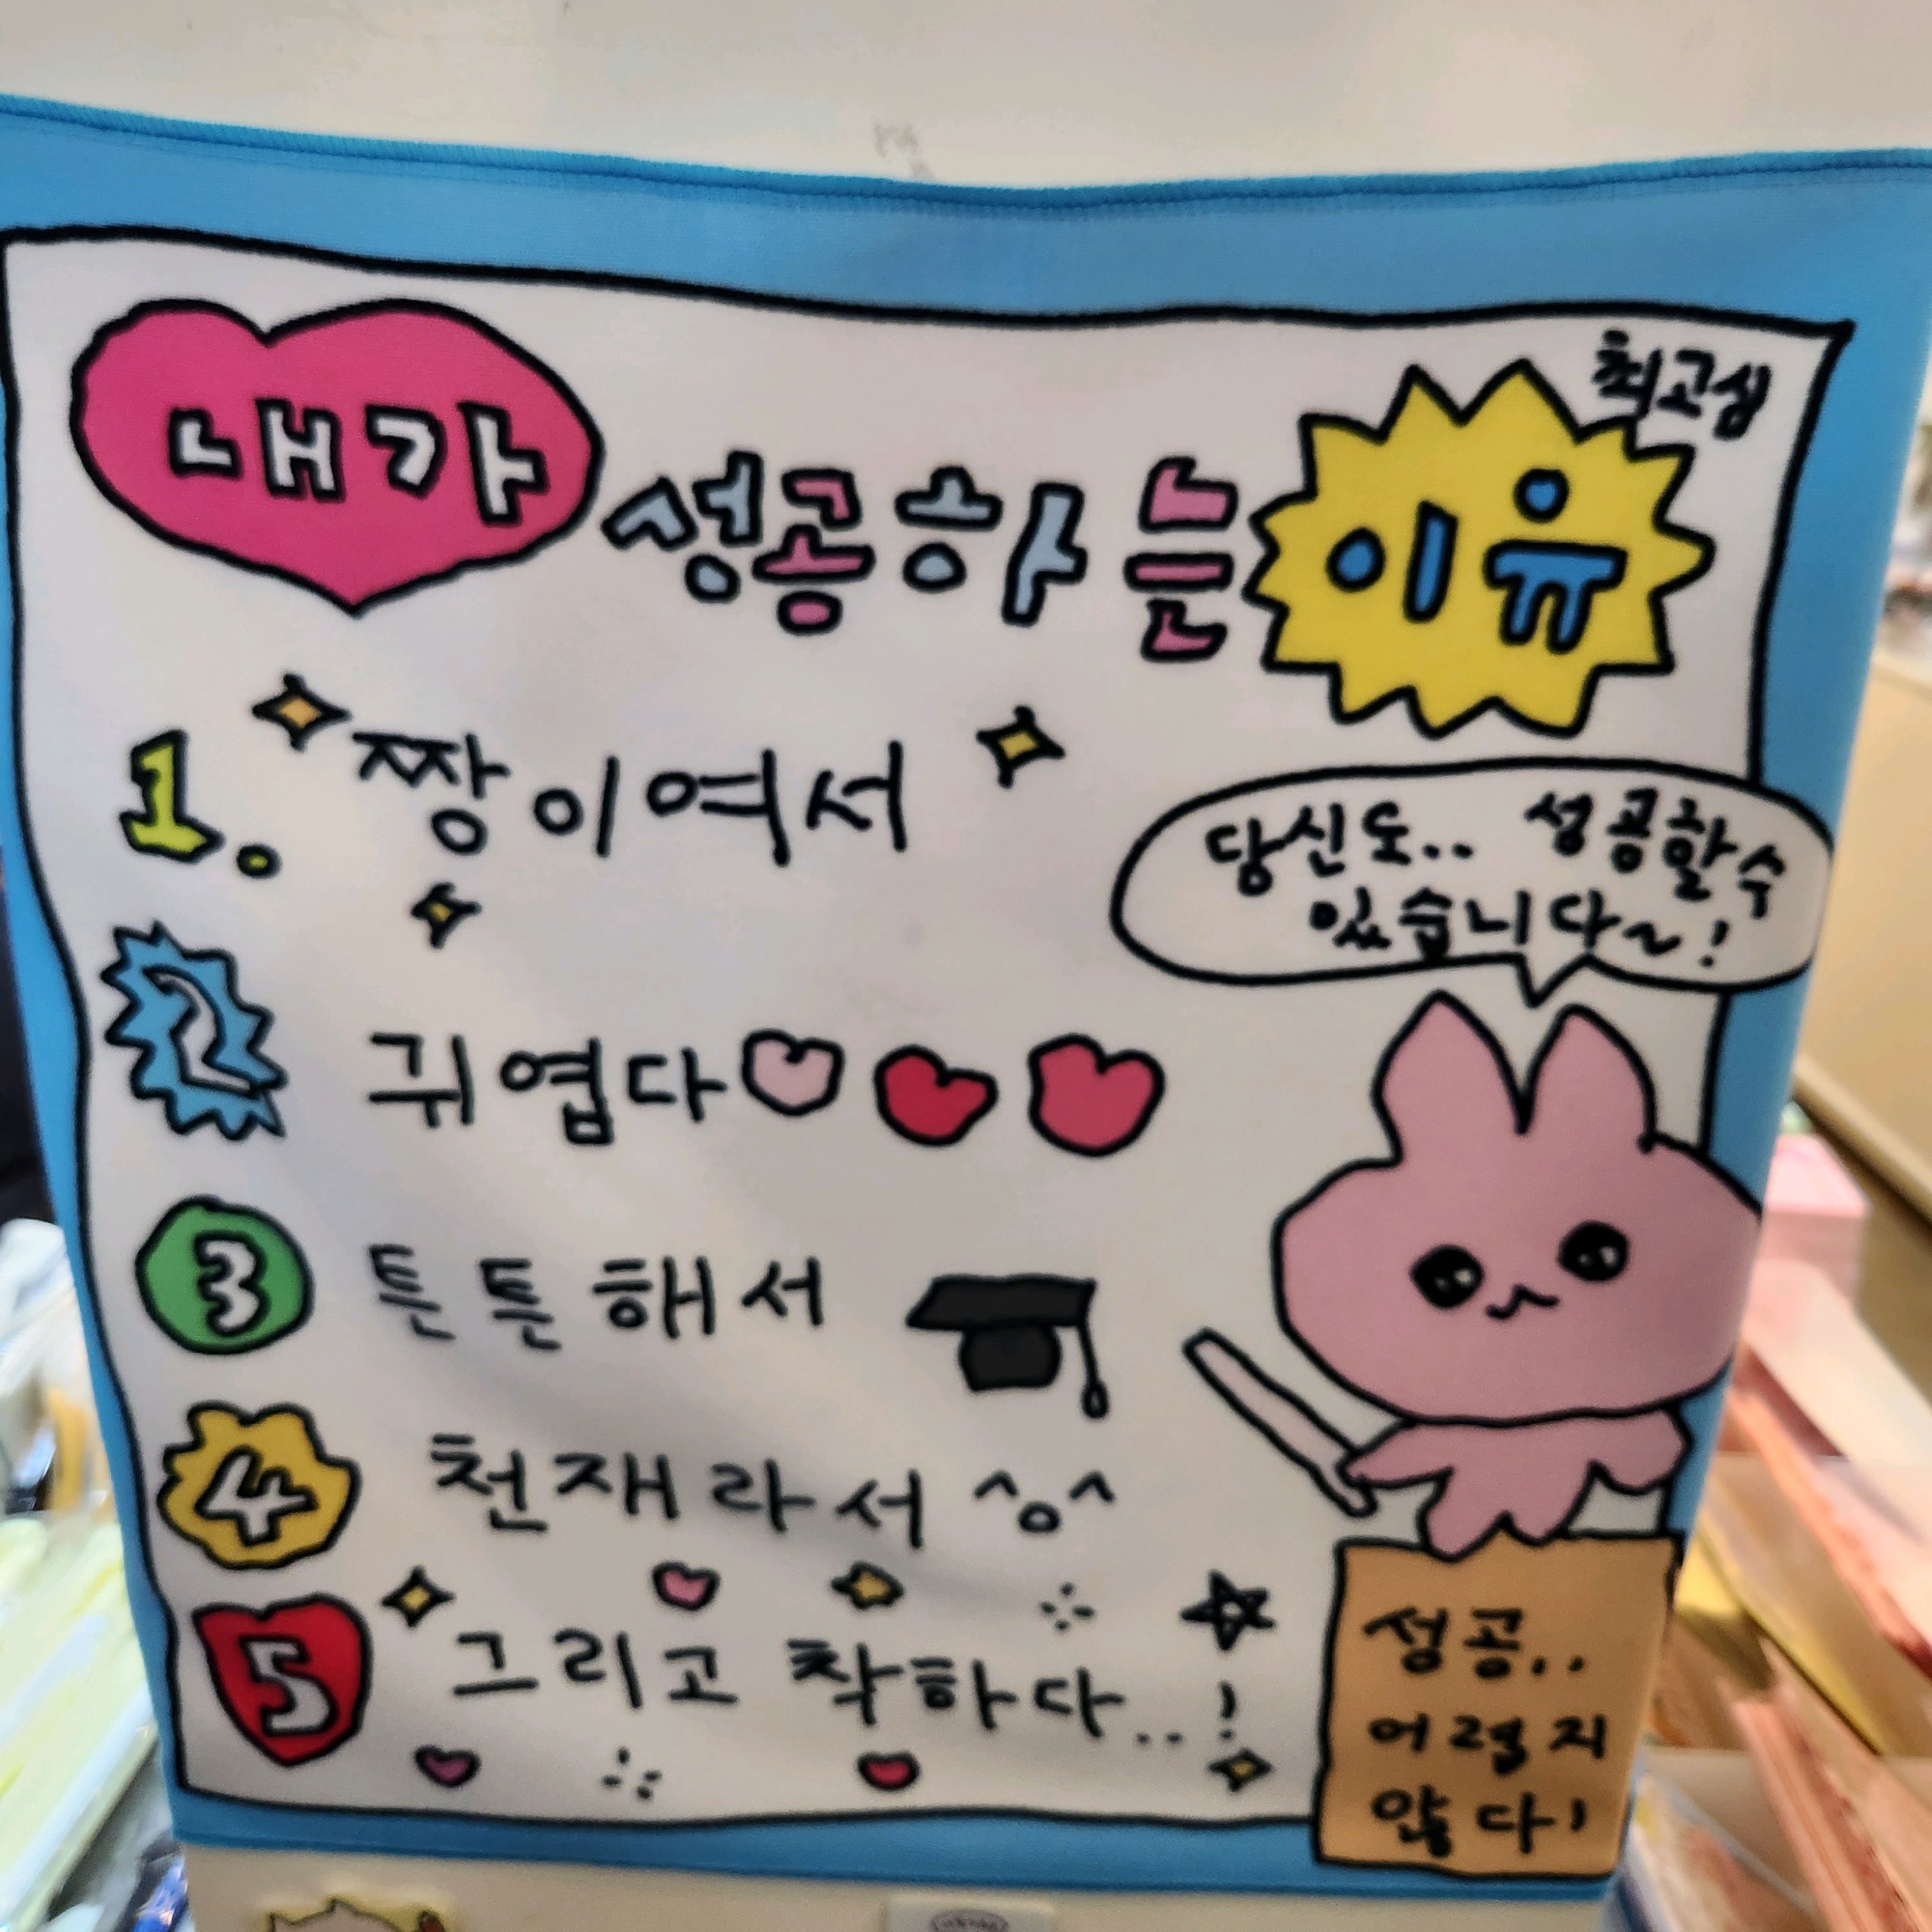 최고심
내가 성공하는 이유
1. 짱이여서
당신도.. 성공할수
있습니다~!
2 귀엽다
3 튼튼해서
4 천재라서 ^o^
5 그리고 착하다..!
성공..
어렵지
않다!